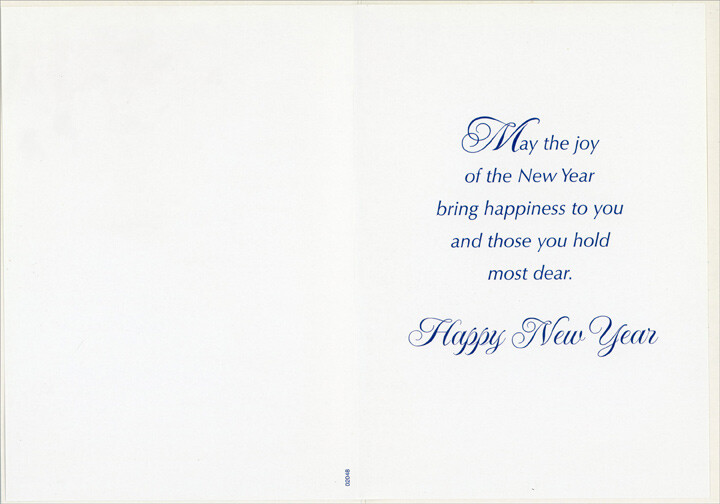 May the joy
of the New Year
bring happiness to you
and those you hold
most dear.
Happy New Year
02048